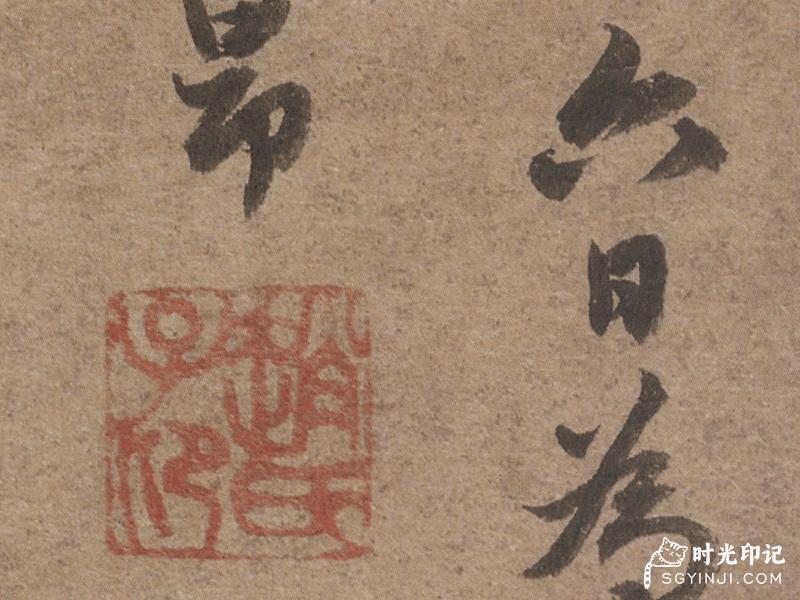 六日為
昂
趙氏子昂
时光印记
SGYINJI.COM